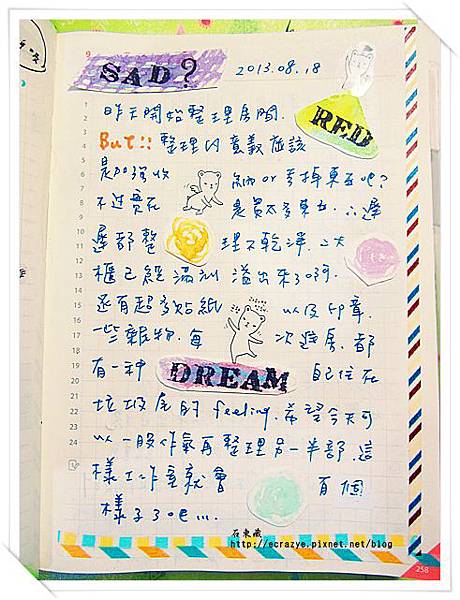 SAD? 2013.08.18
昨天開始整理房間.
RED
But!! 整理的意義應該
是加強收納or丟掉東西吧?
不過實在是買太多東西,
遲都整理不乾淨.
櫃已經滿到溢出來了啊.
還有超多貼紙以及印章.
一些雜物.每次進房.都
有一種 DREAM 自己住在
垃圾屋的feeling.希望今天可
以一股作氣再整理另一半部.這
樣工作室就會有個
樣子了吧...
石東織
http://ecrazye.pixnet.net/blog
258